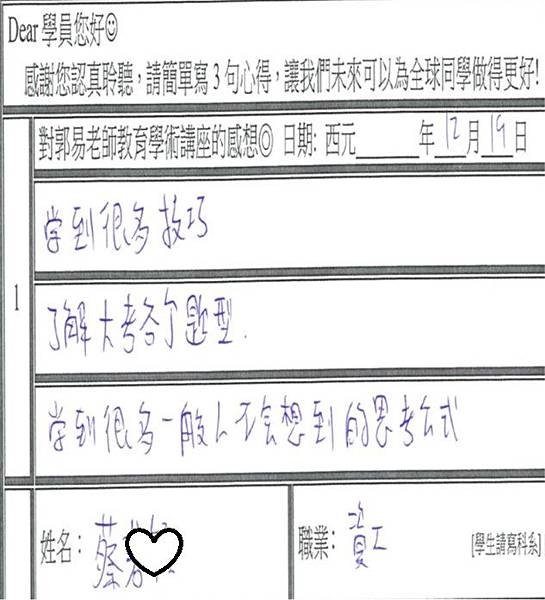 Dear 學員您好☺
感謝您認真聆聽，請簡單寫3句心得，讓我們未來可以為全球同學做得更好!
對郭易老師教育學術講座的感想◎ 日期: 西元______年12月19日
1
学到很多技巧
了解大考各个題型.
学到很多一般人不会想到的思考公式
姓名: 蔡
職業: 資工 [學生請寫科系]